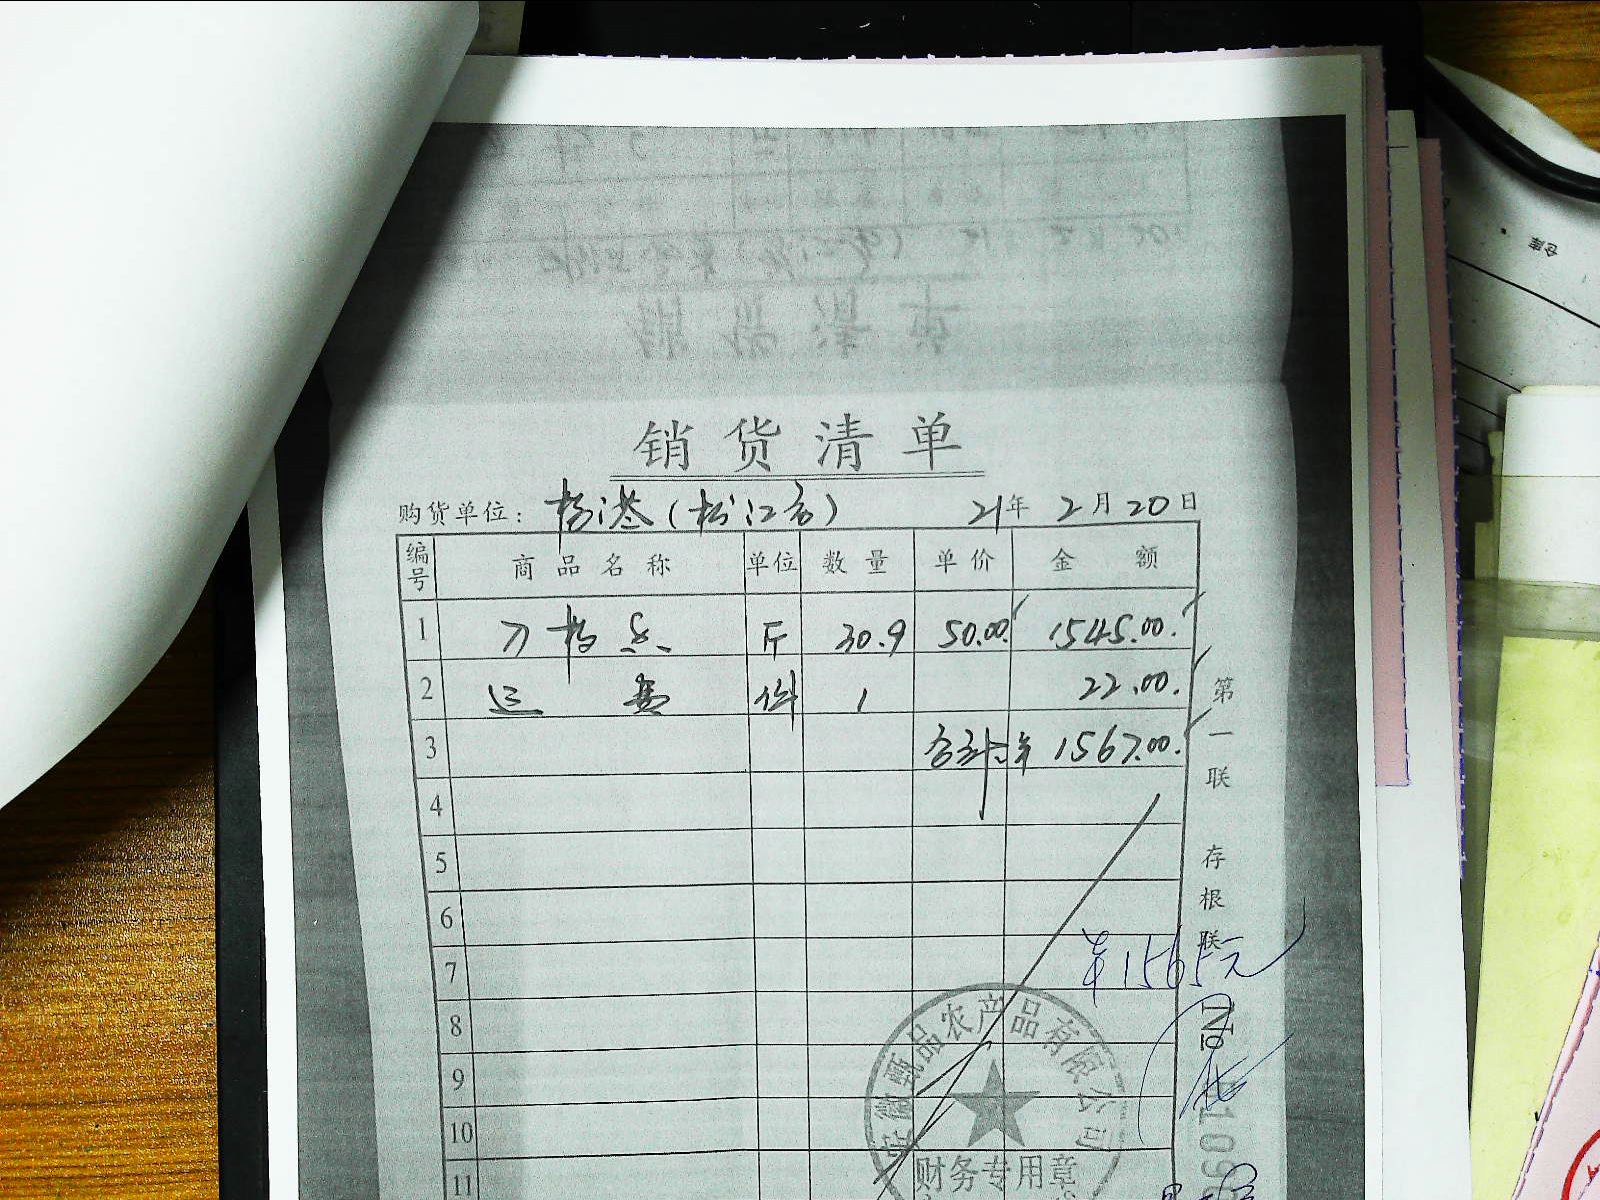 销货清单
购货单位： 杨港（松江店） 21年 2月20日
编号 商品名称 单位 数量 单价 金额
1 刀板 斤 30.9 50.00 1545.00
2 运费 件 1 22.00
3 合计：¥ 1567.00
4
5
6
7
8
9
10
11
第一联 存根联
¥1565元
No
安徽甄品农产品有限公司
财务专用章
仓库